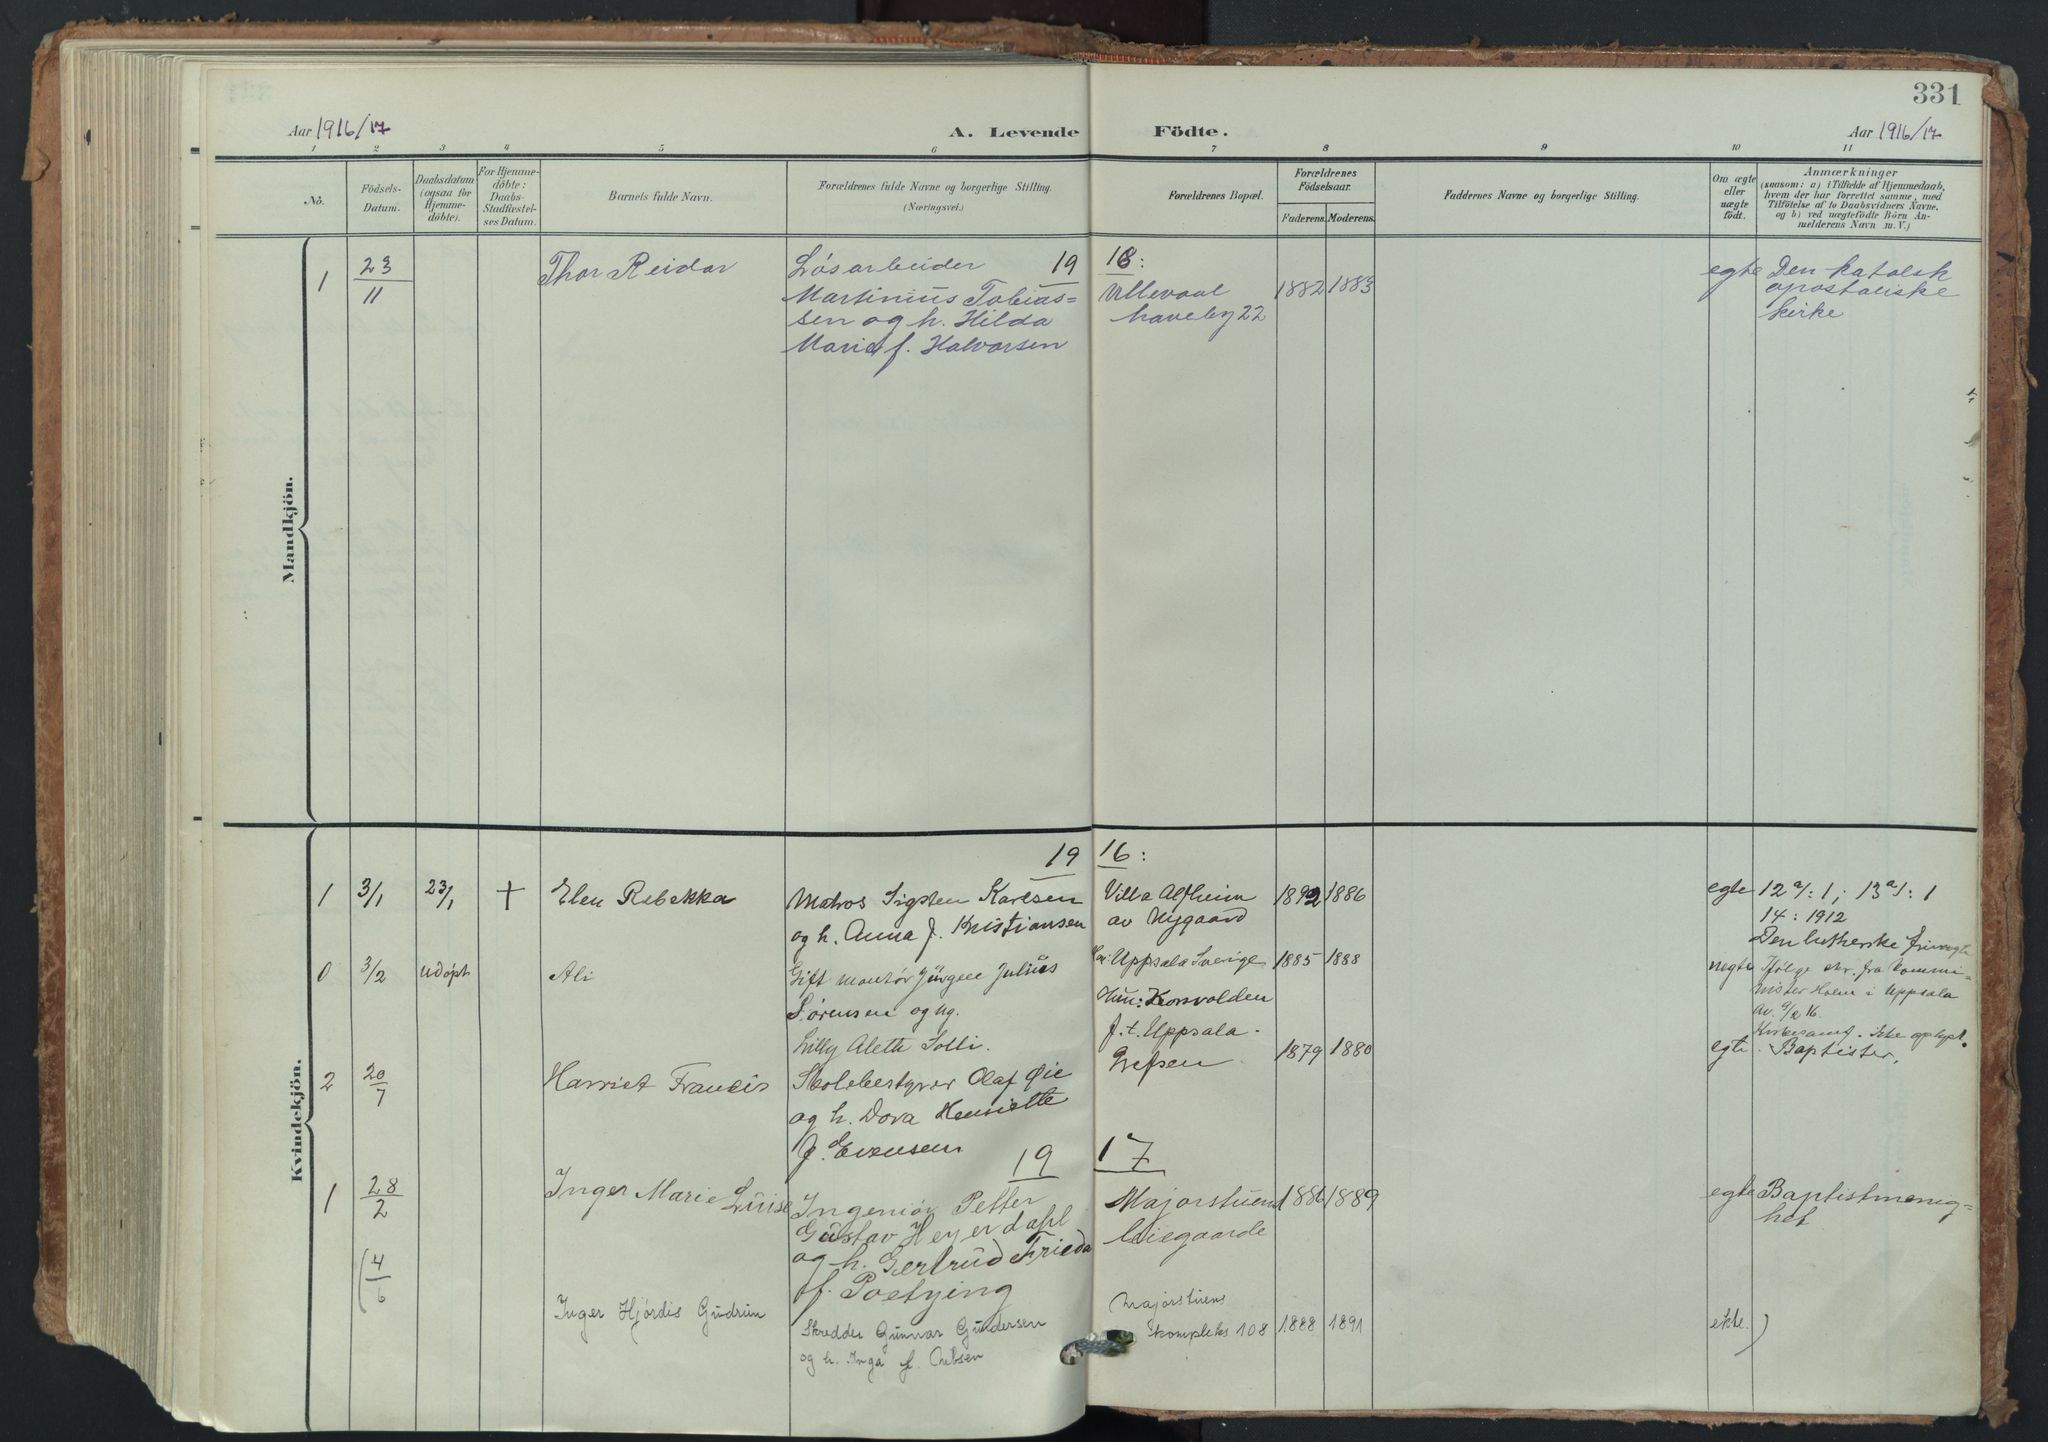 331
Aar 1916/17
A. Levende Födte.
Aar 1916/17
1 2 3 4 5 6 7 8 9 10 11
No.
Födsels-
Datum.
Daabsdatum
(ogsaa for
Hjemme-
döbte).
For Hjemme-
döbte:
Daabs-
Stadfæstel-
ses Datum.
Barnets fulde Navn.
Forældrenes fulde Navne og borgerlige Stilling.
(Næringsvei.)
Forældrenes Bopæl.
Forældrenes
Födselsaar.
Faderens. Moderens.
Faddernes Navne og borgerlige Stilling.
Om ægte
eller
uægte
födt.
Anmærkninger
(saasom: a) i Tilfælde af Hjemmedaab,
hvem der har forrettet samme, med
Tilföielse af to Daabsvidners Navne,
og b) ved uægtefödte Börn An-
melderens Navn m. V.)
Mandkjön.
19 18:
1 23/11 Thor Reidar Løsarbeider
Martinius Tobias-
sen og h. Hilda
Marie f. Halvorsen
Ullevaal
haveby 22
1882 1883
egte Den katolsk
apostoliske
kirke
Kvindekjön.
19 16:
1 3/1 23/1 + Elen Rebekka Matros Sigsten Karlsen
og h. Anna f. Kristiansen
Villa Alfheim
av Nygaard
1892 1886
egte 12 a/: 1; 13 a/: 1
14: 1912
Den lutherske
0 3/2 udøpt Ali Gift montør Jørgen Julius
Sørensen og ug.
Lilly Aleth Solli.
Uppsala Sverige
Hun: Korsvolden
f.t. Uppsala.
1885 1888
uegte Ifølge skr. fra kommi-
nister Holm i Uppsala
av 9/2 16.
ikke opløst.
2 20/7 Harriet Francis Skolebestyrer Olaf Øie
og h. Dora Henriette
f. Evensen
Grefsen
1879 1880
egte. Baptister.
19 17
1 28/2 Inger Marie Luise Ingeniør Petter
Gustav Heyerdahl
og h. Gertrud Frieda
f. Poetying
Majorstuens
leiegaarde
1886 1889
egte Baptistmenig-
het
(4/6 Inger Hjördis Gudrun Skredder Gunnar Gundersen
og h. Inga f.
Majorstuens
kompleks 108
1888 1891
ekte.)